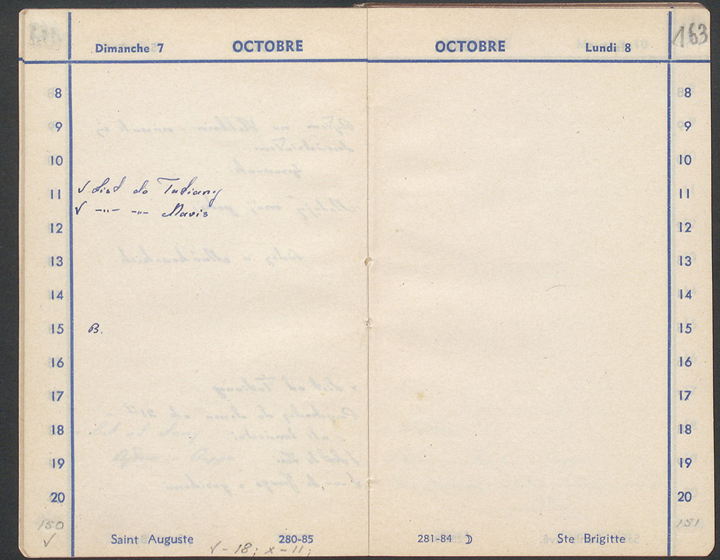 Dimanche 7 OCTOBRE
8
9
10
11 √ List do Tatiany
√ -"- -"- Mavis
12
13
14
15 B.
16
17
18
19
20
150
√
Saint Auguste 280-85
√-18; x-11;
OCTOBRE Lundi 8 163
8
9
10
11
12
13
14
15
16
17
18
19
20
151
281-84 ☽ Ste Brigitte